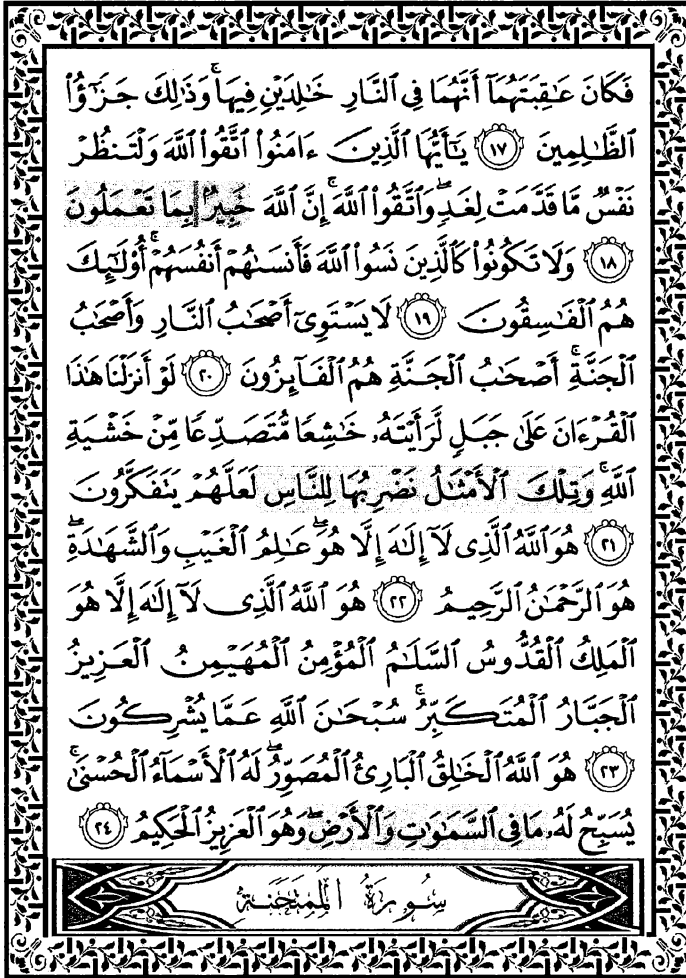 فَكَانَ عَٰقِبَتَهُمَآ أَنَّهُمَا فِى ٱلنَّارِ خَٰلِدَيْنِ فِيهَا ۚ وَذَٰلِكَ جَزَٰٓؤُا۟
ٱلظَّٰلِمِينَ ١٧ يَٰٓأَيُّهَا ٱلَّذِينَ ءَامَنُوا۟ ٱتَّقُوا۟ ٱللَّهَ وَلْتَنظُرْ
نَفْسٌ مَّا قَدَّمَتْ لِغَدٍ ۖ وَٱتَّقُوا۟ ٱللَّهَ ۚ إِنَّ ٱللَّهَ خَبِيرٌۢ بِمَا تَعْمَلُونَ
١٨ وَلَا تَكُونُوا۟ كَٱلَّذِينَ نَسُوا۟ ٱللَّهَ فَأَنسَىٰهُمْ أَنفُسَهُمْ ۚ أُو۟لَٰٓئِكَ
هُمُ ٱلْفَٰسِقُونَ ١٩ لَا يَسْتَوِىٓ أَصْحَٰبُ ٱلنَّارِ وَأَصْحَٰبُ
ٱلْجَنَّةِ ۚ أَصْحَٰبُ ٱلْجَنَّةِ هُمُ ٱلْفَآئِزُونَ ٢٠ لَوْ أَنزَلْنَا هَٰذَا
ٱلْقُرْءَانَ عَلَىٰ جَبَلٍ لَّرَأَيْتَهُۥ خَٰشِعًا مُّتَصَدِّعًا مِّنْ خَشْيَةِ
ٱللَّهِ ۚ وَتِلْكَ ٱلْأَمْثَٰلُ نَضْرِبُهَا لِلنَّاسِ لَعَلَّهُمْ يَتَفَكَّرُونَ
٢١ هُوَ ٱللَّهُ ٱلَّذِى لَآ إِلَٰهَ إِلَّا هُوَ ۖ عَٰلِمُ ٱلْغَيْبِ وَٱلشَّهَٰدَةِ ۖ
هُوَ ٱلرَّحْمَٰنُ ٱلرَّحِيمُ ٢٢ هُوَ ٱللَّهُ ٱلَّذِى لَآ إِلَٰهَ إِلَّا هُوَ
ٱلْمَلِكُ ٱلْقُدُّوسُ ٱلسَّلَٰمُ ٱلْمُؤْمِنُ ٱلْمُهَيْمِنُ ٱلْعَزِيزُ
ٱلْجَبَّارُ ٱلْمُتَكَبِّرُ ۚ سُبْحَٰنَ ٱللَّهِ عَمَّا يُشْرِكُونَ
٢٣ هُوَ ٱللَّهُ ٱلْخَٰلِقُ ٱلْبَارِئُ ٱلْمُصَوِّرُ ۖ لَهُ ٱلْأَسْمَآءُ ٱلْحُسْنَىٰ ۚ
يُسَبِّحُ لَهُۥ مَا فِى ٱلسَّمَٰوَٰتِ وَٱلْأَرْضِ ۖ وَهُوَ ٱلْعَزِيزُ ٱلْحَكِيمُ ٢٤
سُورَةُ المُمْتَحَنَةِ